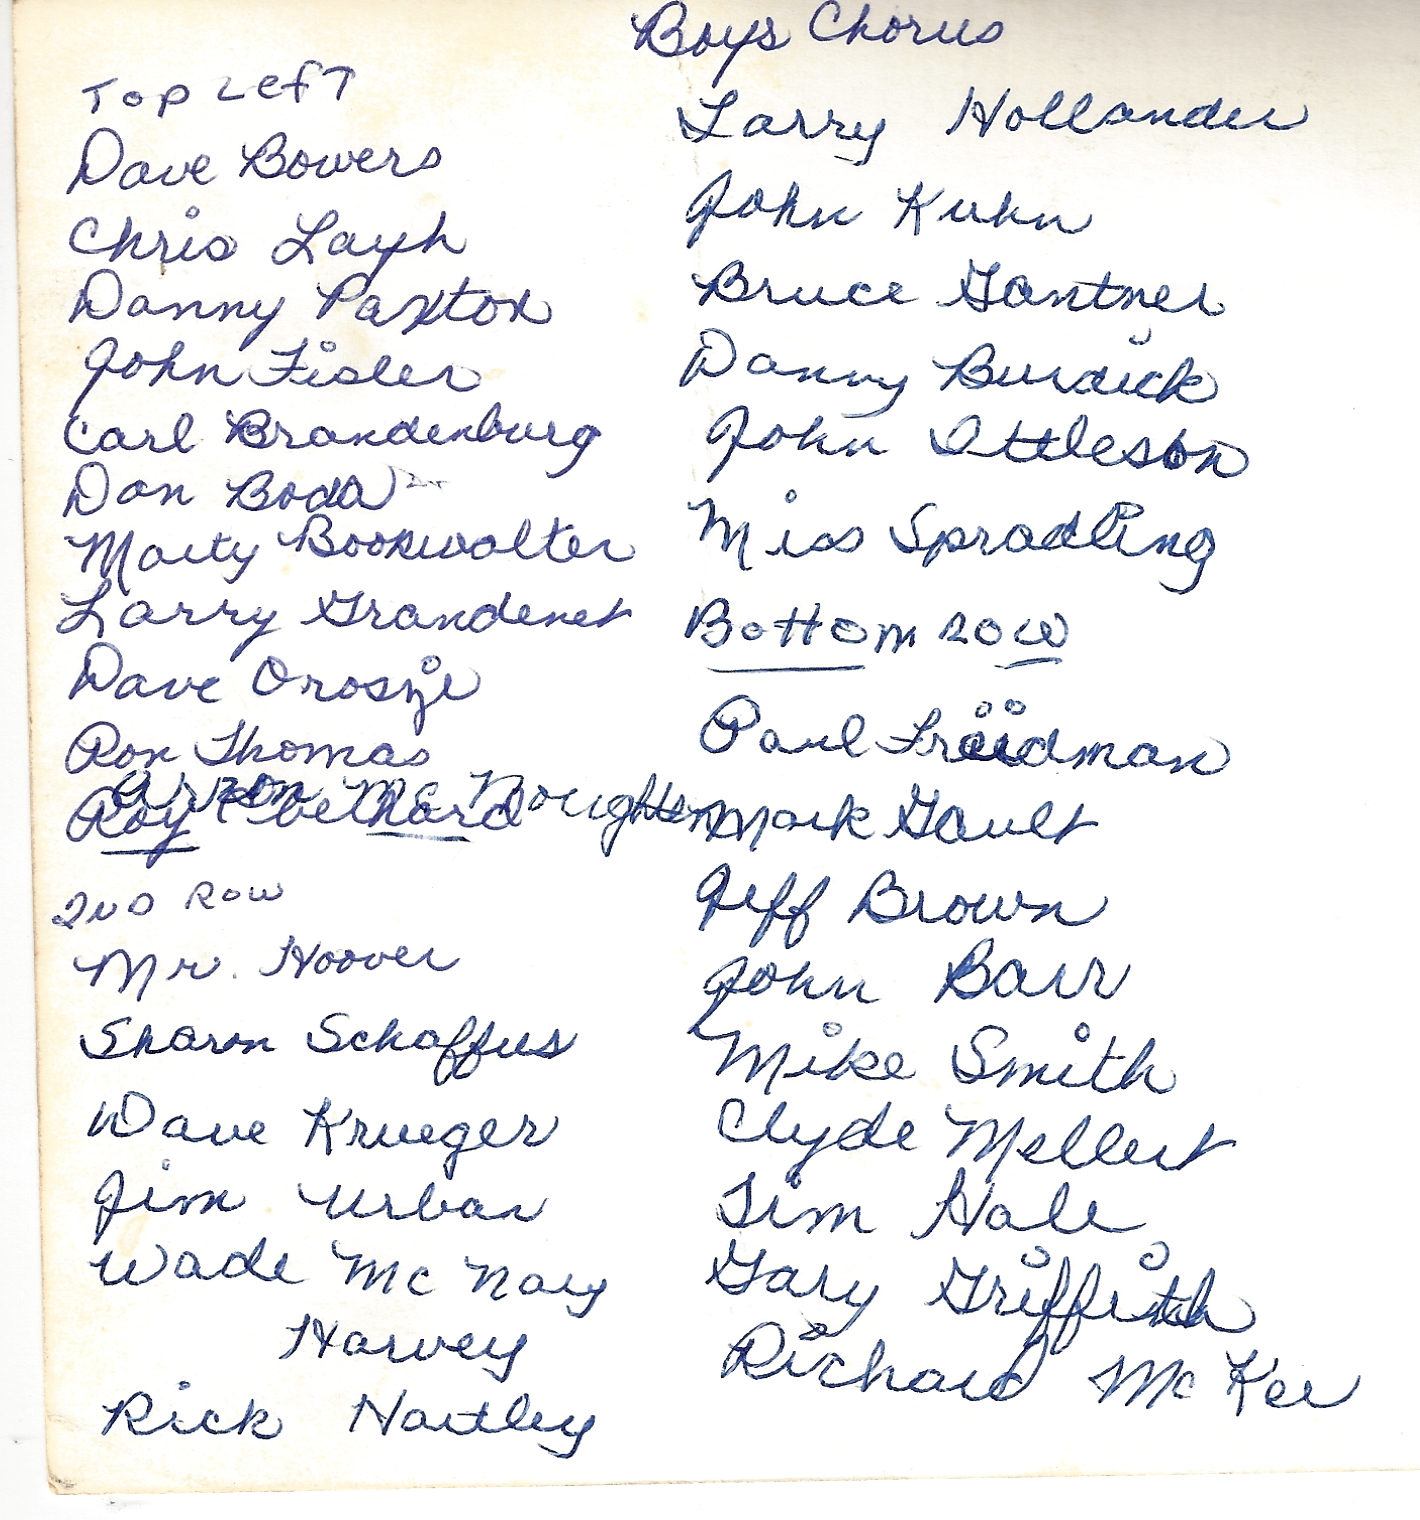 Boys Chorus
Top Left
Dave Bowers
Chris Layh
Danny Paxton
John Fisler
Carl Brandenburg
Dan Boda
Marty Bookwalter
Larry Grandenet
Dave Orosz
Ron Thomas
Mc Noughten
Roy Eberhard
2nd Row
Mr. Hoover
Sharon Schaffus
Dave Krueger
Jim Urban
Wade Mc Nary
Harvey
Rick Hartley
Larry Hollander
John Kuhn
Bruce Gantner
Danny Burdick
John Ittleson
Miss Spradling
Bottom row
Paul Friedman
Mark Gault
Jeff Brown
John Barr
Mike Smith
Clyde Mellert
Tim Hale
Gary Griffith
Richard McKee